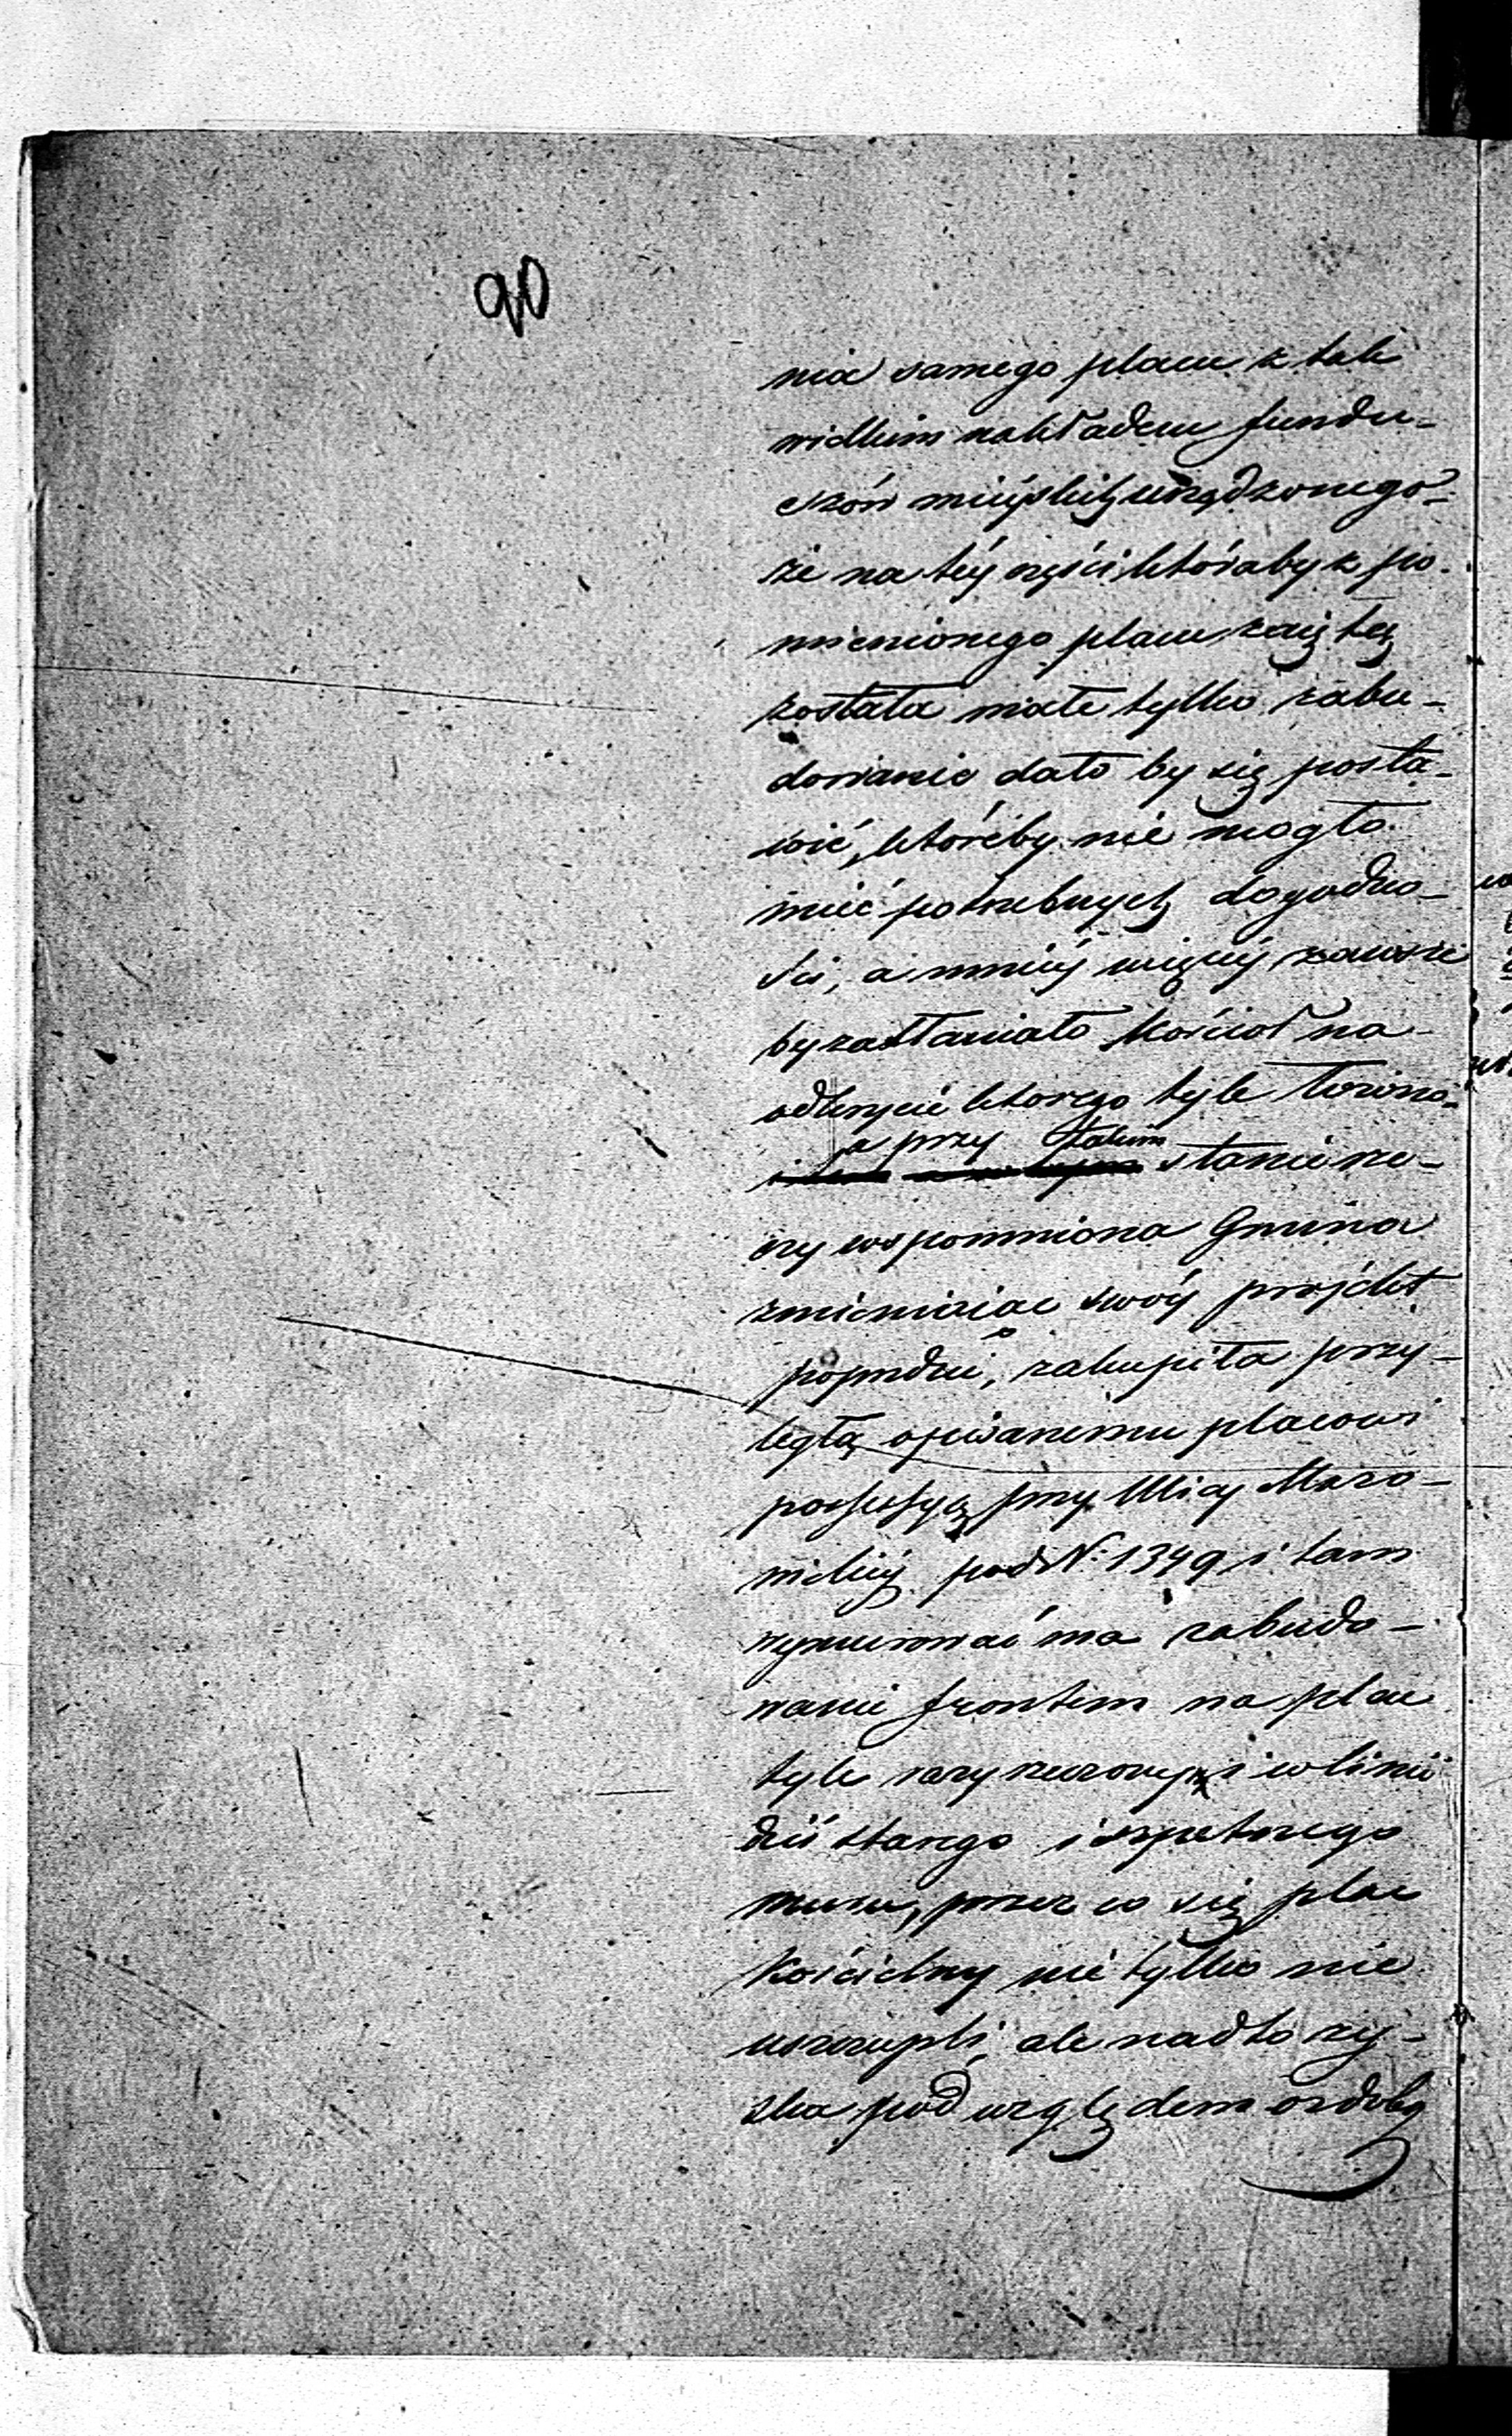 90
nia samego placu z tak
wielkim nakładem fundu-
szów mieyskich urządzonego-
że na téy części któraby z po-
mienionego placu zajętą
została małe tylko zabu-
dowanie dało by się posta-
wić, któreby nie mogło
mieć potrzebnych dogodno-
ści, a mniéy więcéy zawsze
by zasłaniało Kościoł na
odkrycie ktorego tyle łożono-
a przy takim
stanie rze-
czy wspomniona Gmina
zmieniaiac swóy projekt
poprzedni, zakupiła przy-
ległą opisanemu placowi
possessyą przy Ulicy Mazo-
wieckiéy pod N: 1349 i tam
wymurować ma zabudo-
wanie frontem na plac
tyle razy rzeczony i w linii
dziś starego i szpetnego
muru, przez co się plac
Kościelny nie tylko nie
uszczupli, ale nadto zy-
ska pod względem ozdoby